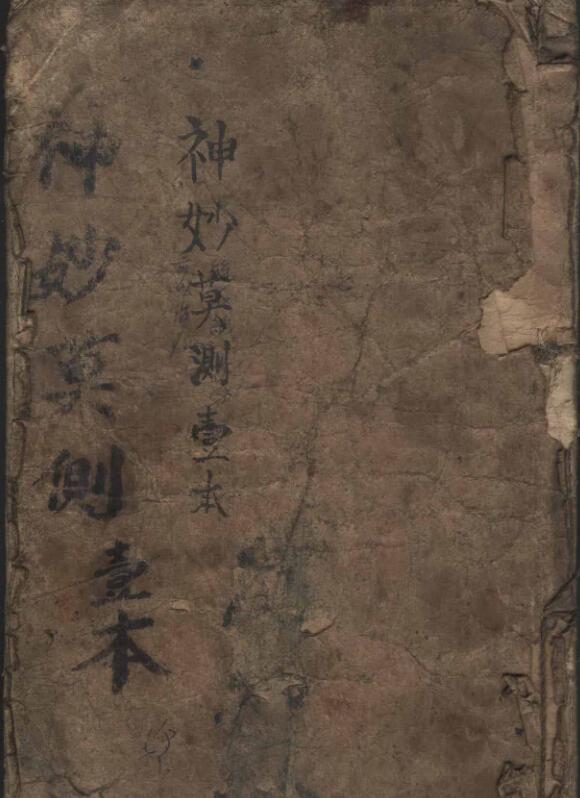 神妙莫測壹本
神妙莫測壹本